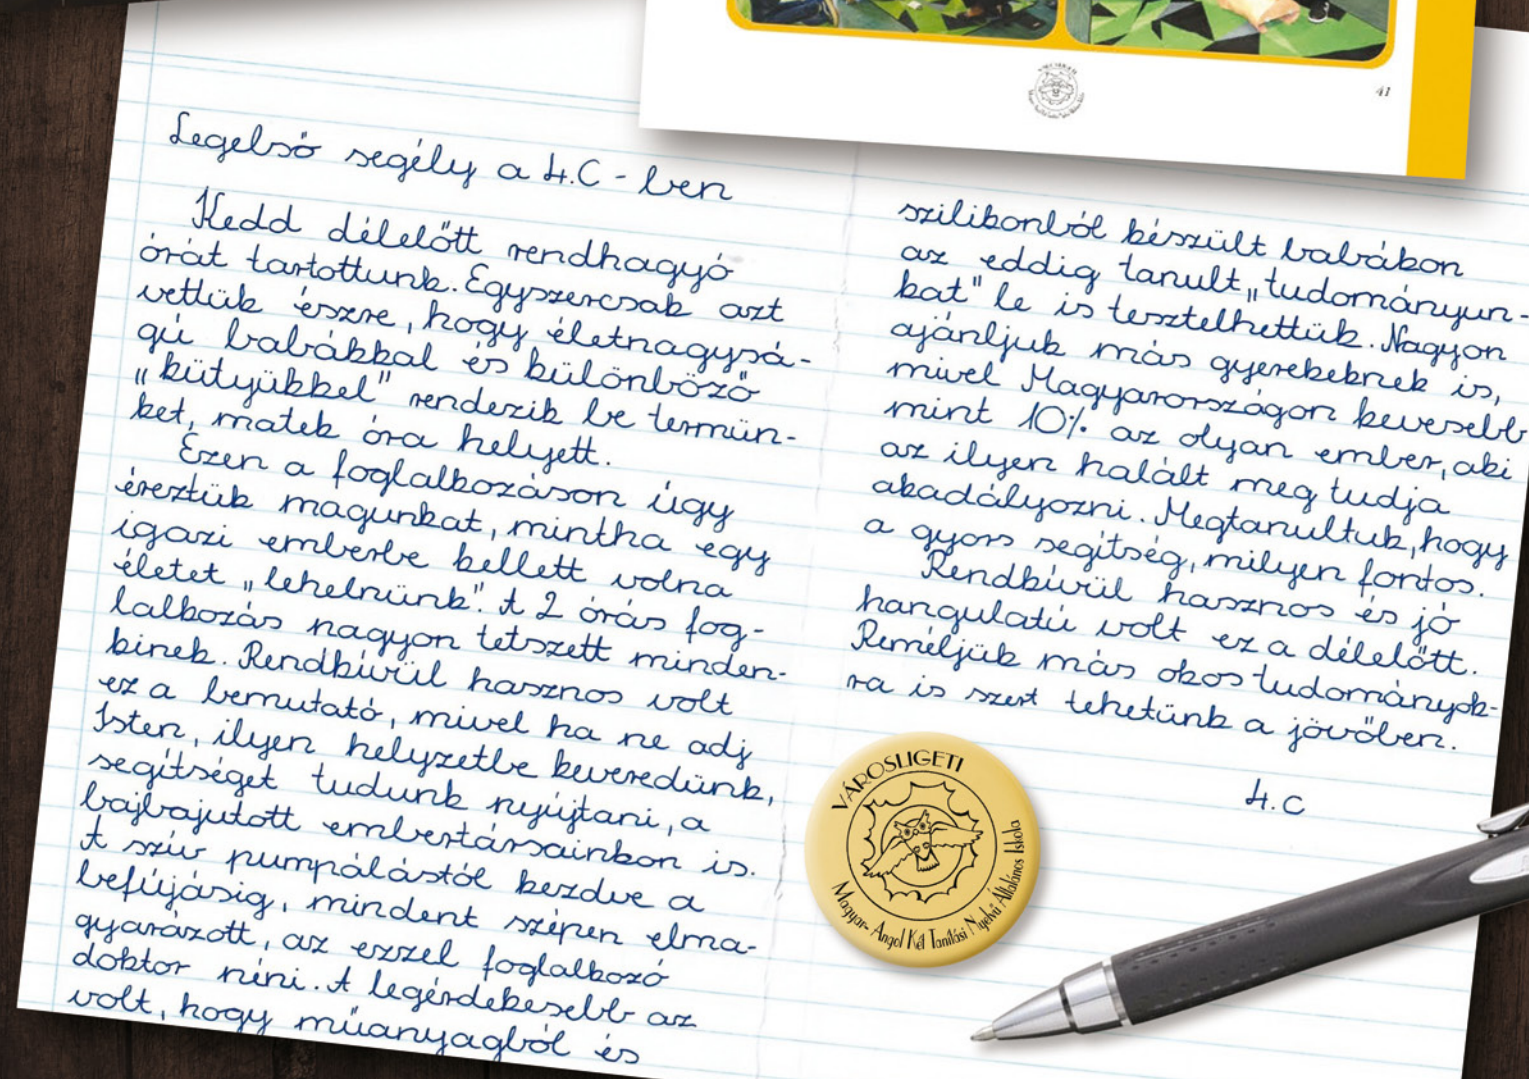 41
Legelső segély a 4.C - ben
Kedd délelőtt rendhagyó
órát tartottunk. Egyszercsak azt
vettük észre, hogy életnagysá-
gú babákkal és különböző
„kütyükkel" rendezik be termün-
ket, matek óra helyett.
Ezen a foglalkozáson úgy
éreztük magunkat, mintha egy
igazi emberbe kellett volna
életet „lehelnünk". A 2 órás fog-
lalkozás nagyon tetszett minden-
kinek. Rendkívül hasznos volt
ez a bemutató, mivel ha ne adj
Isten, ilyen helyzetbe keveredünk,
segítséget tudunk nyújtani, a
bajbajutott embertársainkon is.
A szív pumpálástól kezdve a
befújásig, mindent szépen elma-
gyarázott, az ezzel foglalkozó
doktor néni. A legérdekesebb az
volt, hogy műanyagból és
szilikonból készült babákon
az eddig tanult „tudományun-
kat" le is tesztelhettük. Nagyon
ajánljuk más gyerekeknek is,
mivel Magyarországon kevesebb
mint 10% az olyan ember, aki
az ilyen halált meg tudja
akadályozni. Megtanultuk, hogy
a gyors segítség, milyen fontos.
Rendkívül hasznos és jó
hangulatú volt ez a délelőtt.
Reméljük más okos tudományok-
ra is szert tehetünk a jövőben.
4.C
VÁROSLIGETI
Magyar-Angol Két Tanítási Nyelvű Általános Iskola